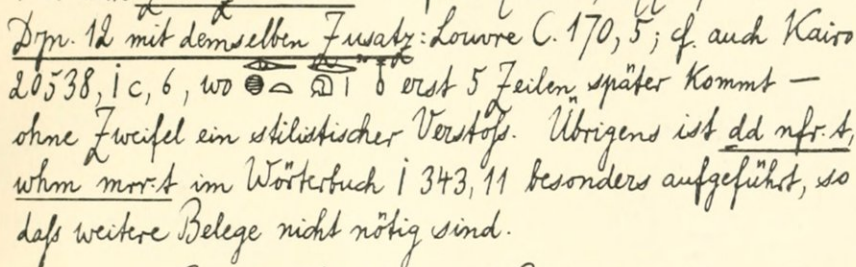 Dyn. 12 mit demselben Zusatz: Louvre C. 170, 5; cf. auch Kairo
20538, I c, 6, wo erst 5 Zeilen später kommt —
ohne Zweifel ein stilistischer Verstoß. Übrigens ist dd nfr·t,
whm mrr·t im Wörterbuch I 343, 11 besonders aufgeführt, so
daß weitere Belege nicht nötig sind.